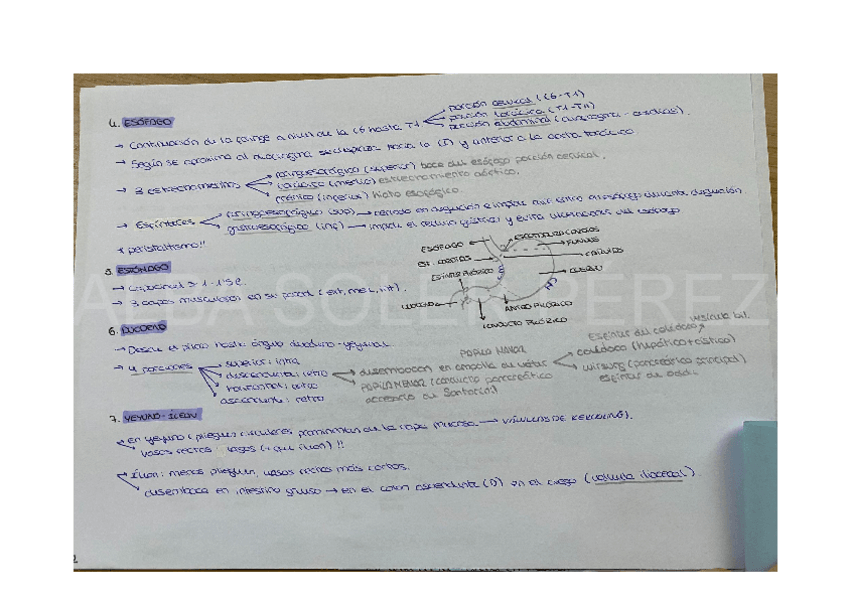 4. ESÓFAGO
→ Continuación de la faringe a nivel de la C6 hasta T1
porción cervical (C6-T1)
porción torácica (T1-T11)
porción abdominal (diafragma - cardias).
→ Según se aproxima al diafragma se desplaza hacia la (I) y anterior a la aorta torácica
→ 3 estrechamientos
faringoesofágico (superior) boca del esófago porción cervical.
torácico (medio) estrechamiento aórtico.
frénico (inferior) hiato esofágico.
→ Esfínteres
faringoesofágico (sup) → cerrado en deglución e impide aire entre en esófago durante
gastroesofágico (inf) → impide el reflujo gástrico y evita ulceraciones del esófago
* peristaltismo!!
ESÓFAGO
ESCOTADURA CARDIAS
FUNDUS
EST. CARDIAS
CARDIAS
ESFÍNTER PILÓRICO
CUERPO
DUODENO
ANTRO PILÓRICO
CONDUCTO PILÓRICO
5. ESTÓMAGO
→ Capacidad → 1-1'5L.
→ 3 capas musculares en su pared (ext, med, int).
6. DUODENO
→ Desde el píloro hasta ángulo duodeno-yeyunal
→ 4 porciones
superior: intra
descendente: retro
horizontal: retro
ascendente: retro
PAPILA MAYOR
desembocan en ampolla de Vater
PAPILA MENOR (conducto pancreático
accesorio de Santorini)
Esfínter del colédoco
vesícula bil.
colédoco (hepático + cístico)
wirsung (pancreático principal)
esfínter de Oddi.
7. YEYUNO-ÍLEON
En yeyuno (pliegues circulares prominentes de la capa mucosa → VÁLVULAS DE KERCKRING).
vasos rectos largos (+ que íleon)!!
Íleon: menos pliegues, vasos rectos más cortos.
desemboca en intestino grueso → en el colon ascendente (D) en el ciego (válvula ileocecal)
2
ALBA SOLER PEREZ